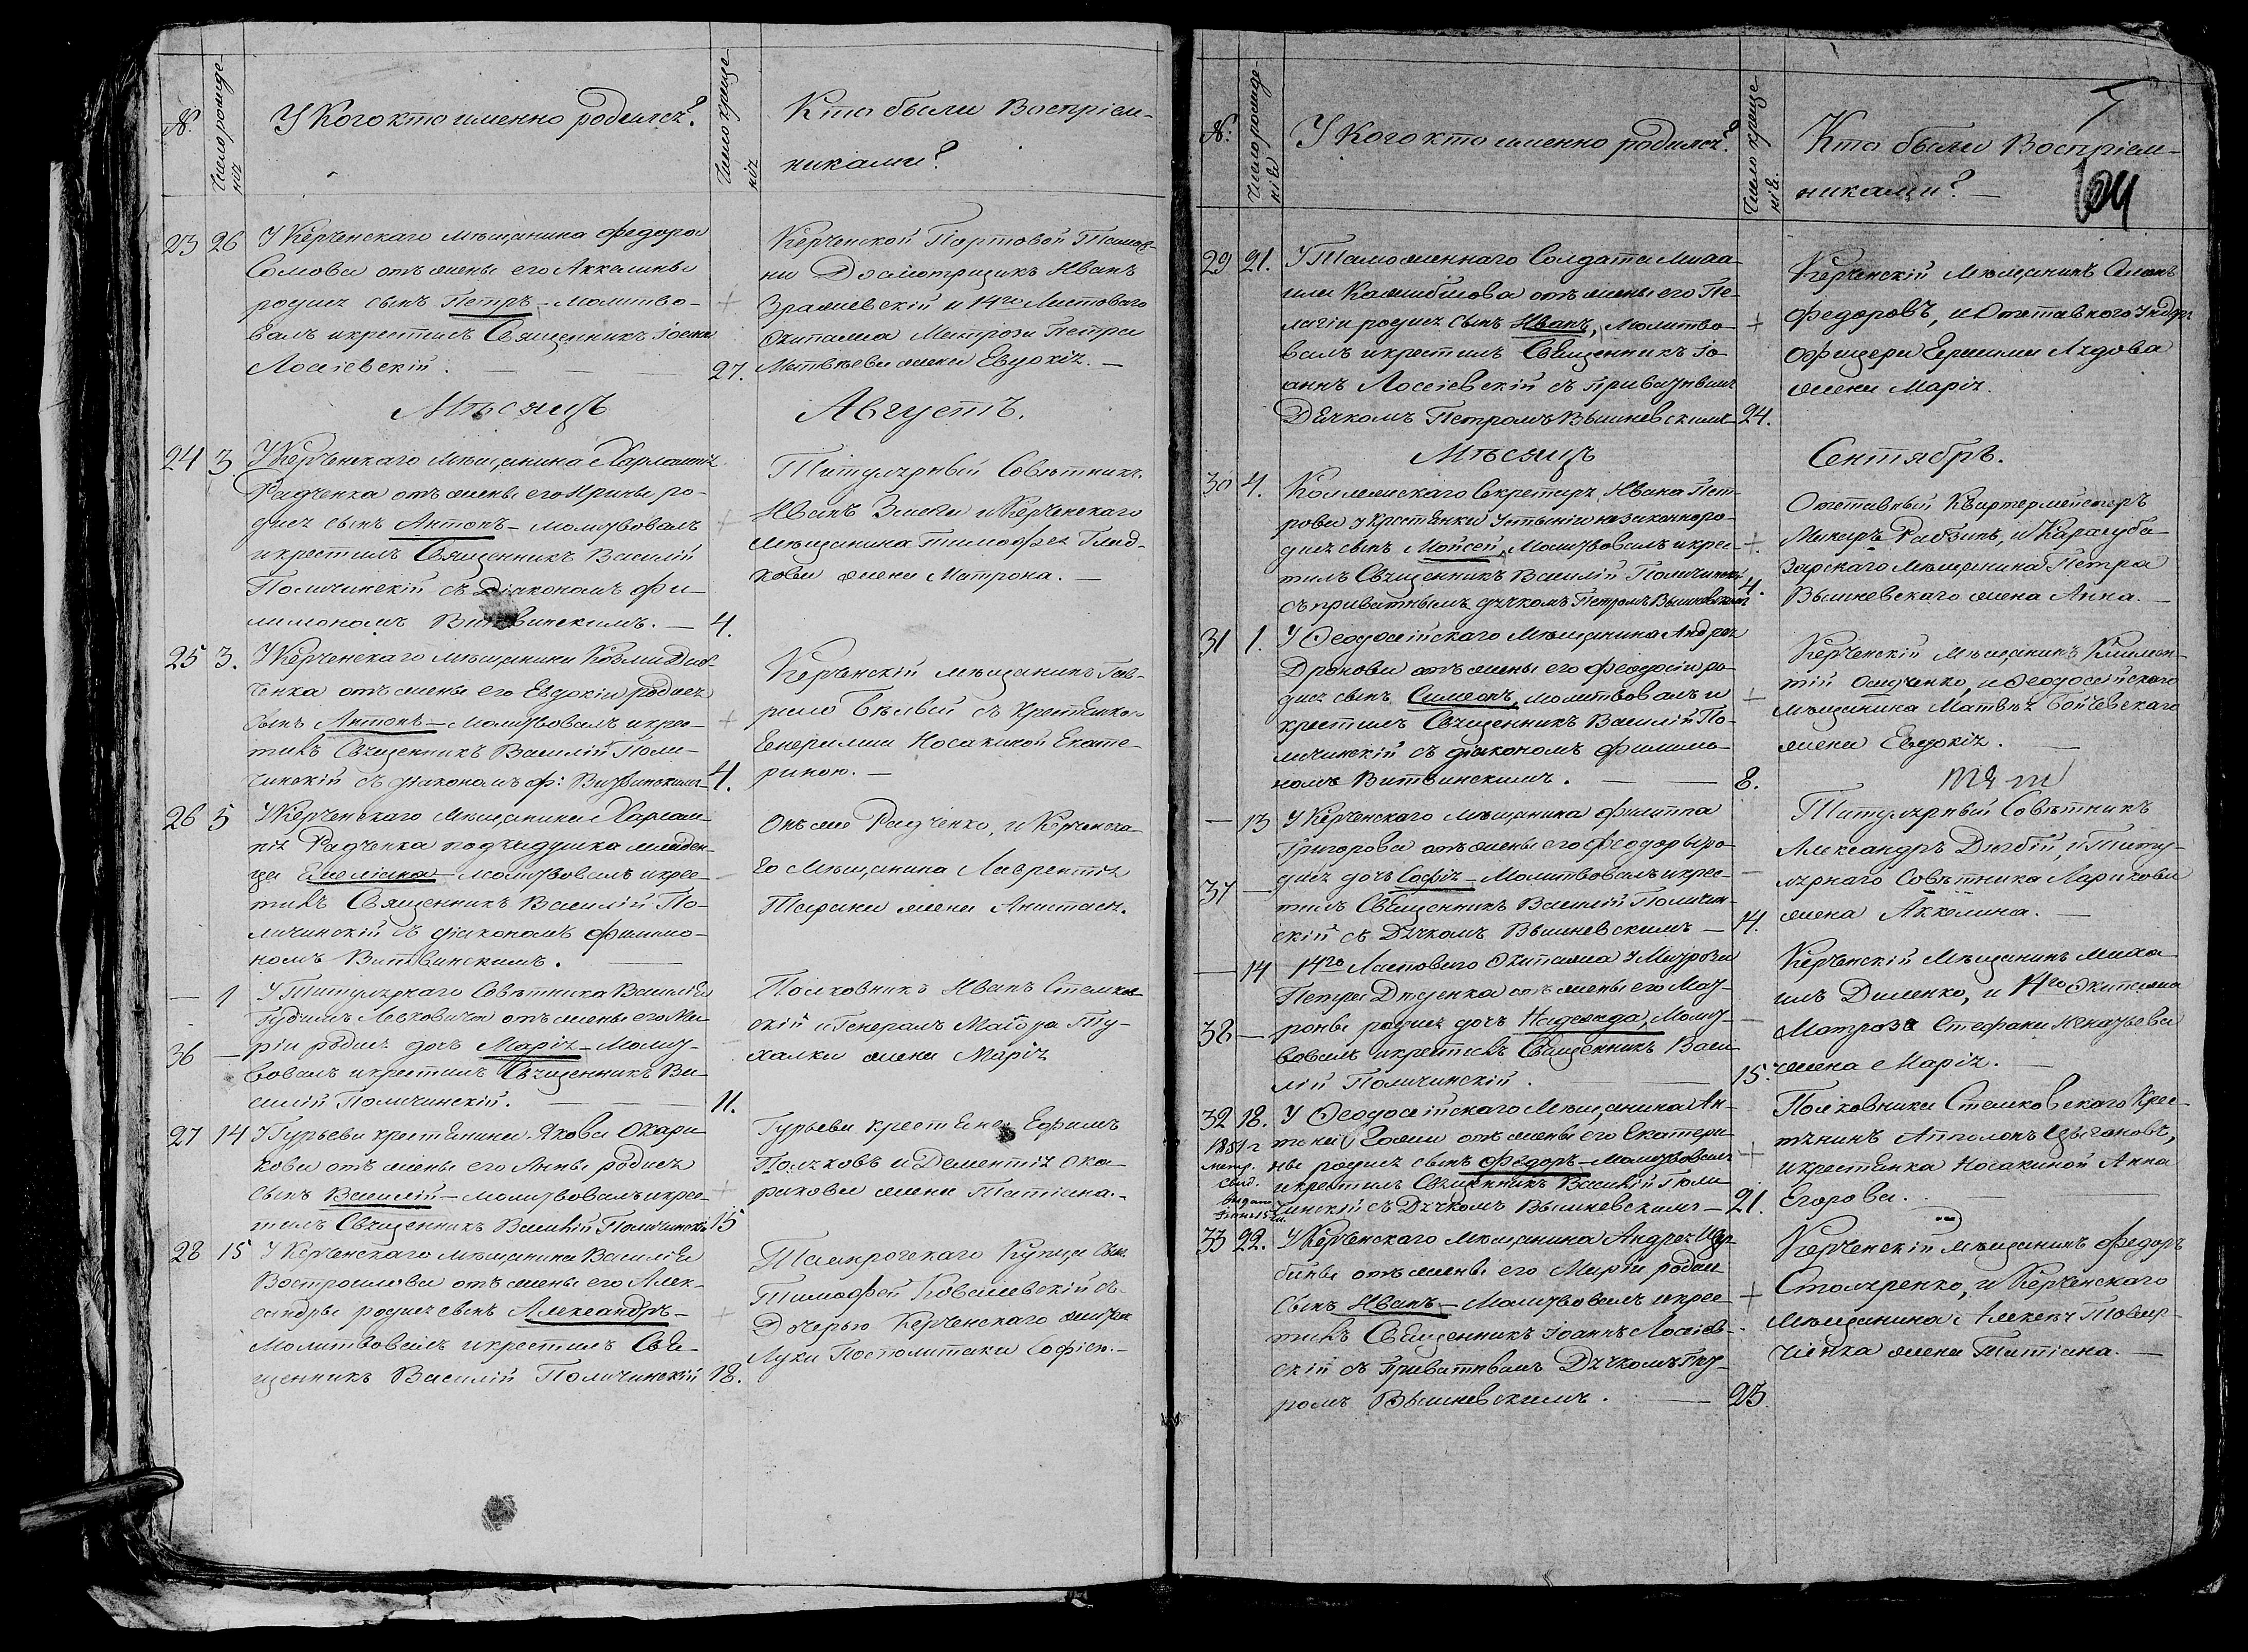 №.
Число рожде-
нія
У Кого кто именно родился?
Число креще-
нія
Кто были Воспріем-
никами?
23 26
У Керченскаго мѣщанина Федора
Сомова отъ жены его Аккелины
родился сынъ Петръ - молитво-
валъ и крестилъ Священникъ Іоаннъ
Лоссіевскій.
27.
Керченской Портовой Тамож-
ни Досмотрщикъ Иванъ
и 14го Ластоваго
Экипажа Матроза Петра
Матвѣева жена Евдокія. —
Мѣсяцъ Августъ.
24 3
У Керченскаго мѣщанина Харлампія
Радченка отъ жены его Ирины ро-
дился сынъ Антонъ - молитвовалъ
и крестилъ Священникъ Василій
Поличинскій съ Діакономъ Фи-
лимономъ Витвинскимъ. —
4.
Титулярный Совѣтникъ
Иванъ и Керченскаго
мѣщанина Тимофея Глад-
кова жена Матрона. —
25 3.
У Керченскаго мѣщанина Козмы
ченка отъ жены его Евдокіи родился
сынъ Антонъ — Молитвовалъ и крес-
тилъ Священникъ Василій Поли-
чинскій съ діакономъ Ф: Витвинскимъ
4.
Керченскій мѣщанинъ Гав-
рило Бѣлый съ Крестьянкою
Генеральши Носакиной Екате-
риною. —
26 5
У Керченскаго мѣщанина Харлам-
пія Радченка подкидушка младен-
ца Емеліана — молитвовалъ и крес-
тилъ Священникъ Василій По-
личинскій съ діакономъ Филимо-
номъ Витвинскимъ.
Онъ же Радченко, и Керченска-
го мѣщанина Лаврентія
Тарана жена Анастасія.
— 1
36 —
У Титулярнаго Совѣтника Василія
Гудимъ Левковича отъ жены его Ма-
ріи родилась дочь Марія — Молит-
вовалъ и крестилъ Священникъ Ва-
силій Поличинскій.
11.
Полковникъ Иванъ Стемков-
скій и Генералъ Маіора Ту-
халки жена Марія
27 14
У Гурьева крестьянина Якова Окари-
кова отъ жены его Анны родился
сынъ Василій — молитвовалъ и крес-
тилъ Священникъ Василій Поличинскій
15
Гурьева крестьяне Ефимъ
Полчковъ и Дементія Ока-
рикова жена Татіана. -
28 15
У Керченскаго мѣщанина Василія
Вострилова отъ жены его Алек-
сандры родился сынъ Александръ —
Молитвовалъ и крестилъ Свя-
щенникъ Василій Поличинскій
18.
Таганрогскаго Купца сынъ
Тимофей Ковалевскій съ
Дочерью Керченскаго
Луки Постолатаки Софіею. —
№:
Число рожде-
нія
У Кого кто именно родился?
Число креще-
нія.
Кто были Воспріем-
никами? —
7
104
29 21.
У Таможеннаго Солдата Миха-
ила отъ жены его Пе-
лагіи родился сынъ Иванъ, Молитво-
валъ и крестилъ Священникъ Іо-
аннъ Лоссіевскій съ приватнымъ
Дячкомъ Петромъ Вышневскимъ
24.
Керченскій Мѣщанинъ
Федоровъ, и Отставного Ундеръ
Офицера Лядова
жена Марія.
Мѣсяцъ Сентябрь.
30 4.
Коллежскаго Секретаря Ивана Пет-
рова у крестьянки Устыніи незаконноро-
дился сынъ Мойсей, Молитвовалъ и крес-
тилъ Священникъ Василій Поличинскій
съ приватнымъ дячкомъ Петромъ Вышневскимъ
4.
Отставный Квартермейстеръ
Макаръ Рабзинъ, и Карасуба-
зарскаго мѣщанина Петра
Вышневскаго жена Анна. —
31 1.
У Ѳеодосійскаго Мѣщанина Андрея
Дракова отъ жены его Феодосіи ро-
дился сынъ Симеонъ, молитвовалъ и
крестилъ Священникъ Василій По-
личинскій съ діакономъ Филимо-
номъ Витвинскимъ.
8.
Керченскій мѣщанинъ Климен-
тій и Ѳеодосійскаго
мѣщанина Матвѣя Бойчевскаго
жена Евдокія.
— 13
37 —
У Керченскаго мѣщанина Филиппа
Григорова отъ жены его Феодоры ро-
дилась дочь Софія — Молитвовалъ и крес-
тилъ Священникъ Василій Поличин-
скій съ Дячкомъ Вышневскимъ —
14.
Титулярный Совѣтникъ
Александръ и Титу-
лярнаго Совѣтника Ларикова
жена Аккелина. —
— 14
38 —
14го Ластоваго Экипажа у Матроза
Петра отъ жены его Мат-
роны родилась дочь Надежда, Молит-
вовалъ и крестилъ Священникъ Васи-
лій Поличинскій.
15.
Керченскій Мѣщанинъ Миха-
илъ Диленко, и 14го Экипажа
Матроза Стефана Игнатьева
жена Марія. —
32 18.
1851 г
метр.
свид.
выдано
У Ѳеодосійскаго Мѣщанина Ан-
тона отъ жены его Екатери-
ны родился сынъ Федоръ — Молитвовалъ
и крестилъ Священникъ Василій Поли-
чинскій съ Дячкомъ Вышневскимъ —
21.
Полковника Стемковскаго Крес-
тянинъ Апполонъ Цыгановъ,
и крестьянка Носакиной Анна
Егорова.
33 22.
У Керченскаго Мѣщанина Андрея
бины отъ жены его Маріи родился
сынъ Иванъ — Молитвовалъ и крес-
тилъ Священникъ Іоаннъ Лоссіев-
скій съ Приватнымъ Дячкомъ Пет-
ромъ Вышневскимъ.
23.
Керченскій мѣщанинъ Федоръ
Столяренко, и Керченскаго
мѣщанина Алексѣя
жена Татіана. —